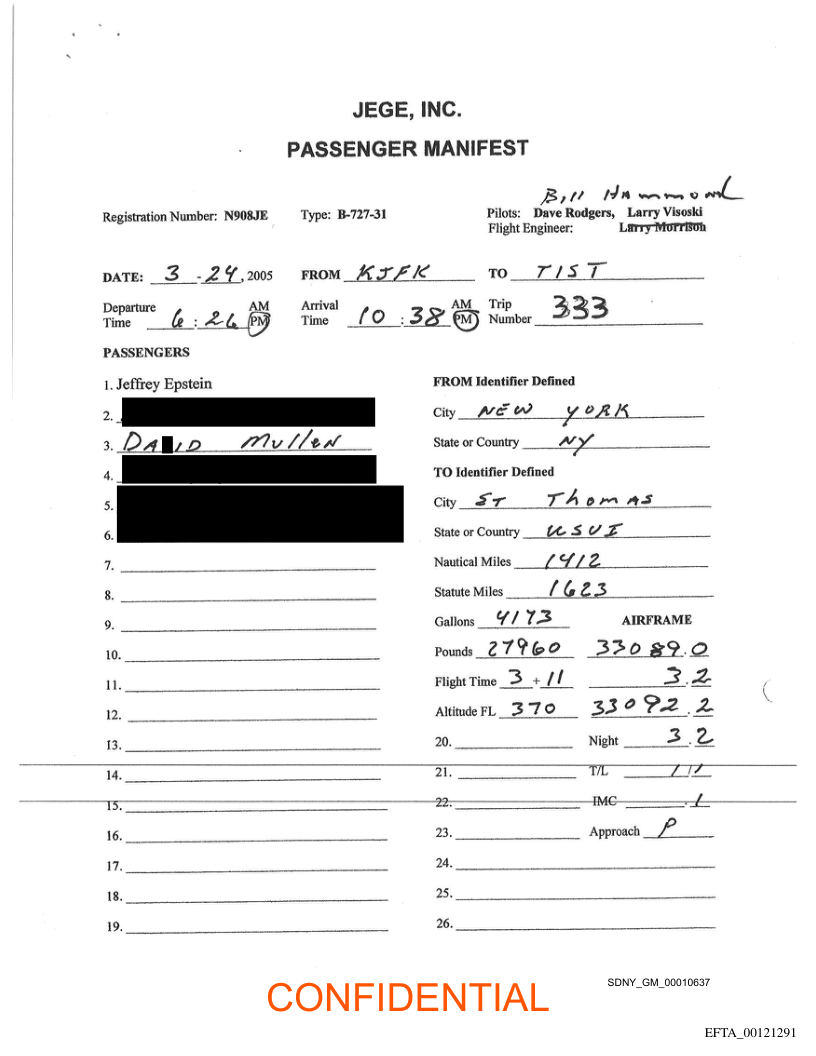 JEGE, INC.
PASSENGER MANIFEST
Bill Hammond
Registration Number: N908JE Type: B-727-31 Pilots: Dave Rodgers, Larry Visoski
Flight Engineer: Larry Morrison
DATE: 3 - 24, 2005 FROM KJFK TO TIST
Departure Time 6 : 26 AM PM Arrival Time 10 : 38 AM PM Trip Number 333
PASSENGERS
1. Jeffrey Epstein
2.
3. DA ID Mullen
4.
5.
6.
7.
8.
9.
10.
11.
12.
13.
14.
15.
16.
17.
18.
19.
FROM Identifier Defined
City NEW YORK
State or Country NY
TO Identifier Defined
City ST Thomas
State or Country USVI
Nautical Miles 1412
Statute Miles 1623
Gallons 4173 AIRFRAME
Pounds 27960 33089.0
Flight Time 3 + 11 3.2
Altitude FL 370 33092.2
20. Night 3.2
21. T/L 1/1
22. IMC .1
23. Approach P
24.
25.
26.
CONFIDENTIAL
SDNY_GM_00010637
EFTA_00121291